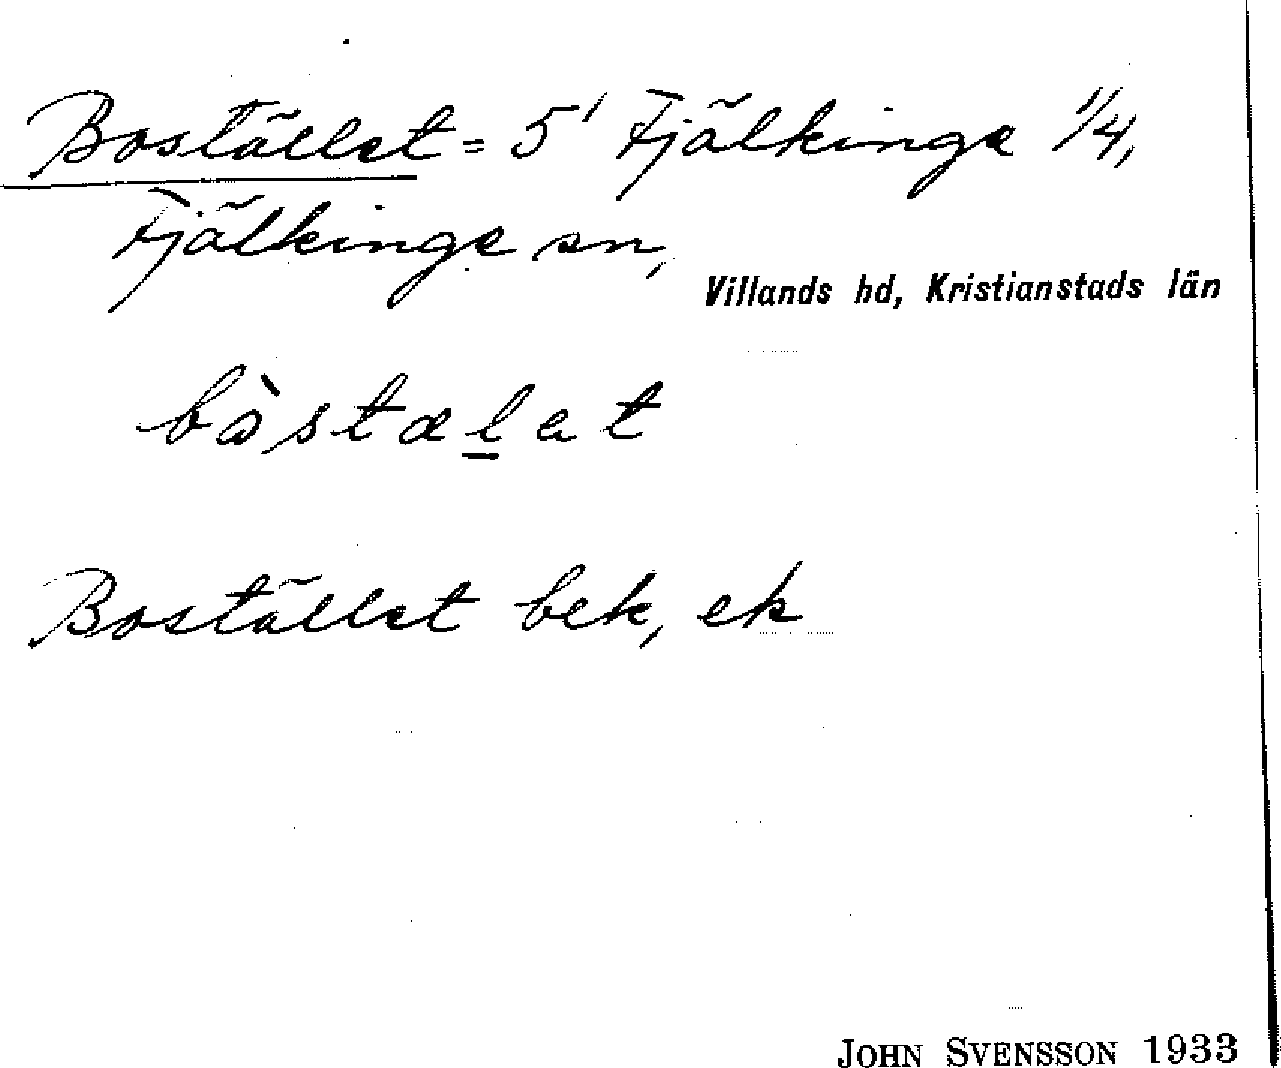 Bostället = 5' Fjälkinge 1/4,
Fjälkinge sn,
Villands hd, Kristianstads län
bòstælat
Bostället bek, ek
JOHN SVENSSON 1933